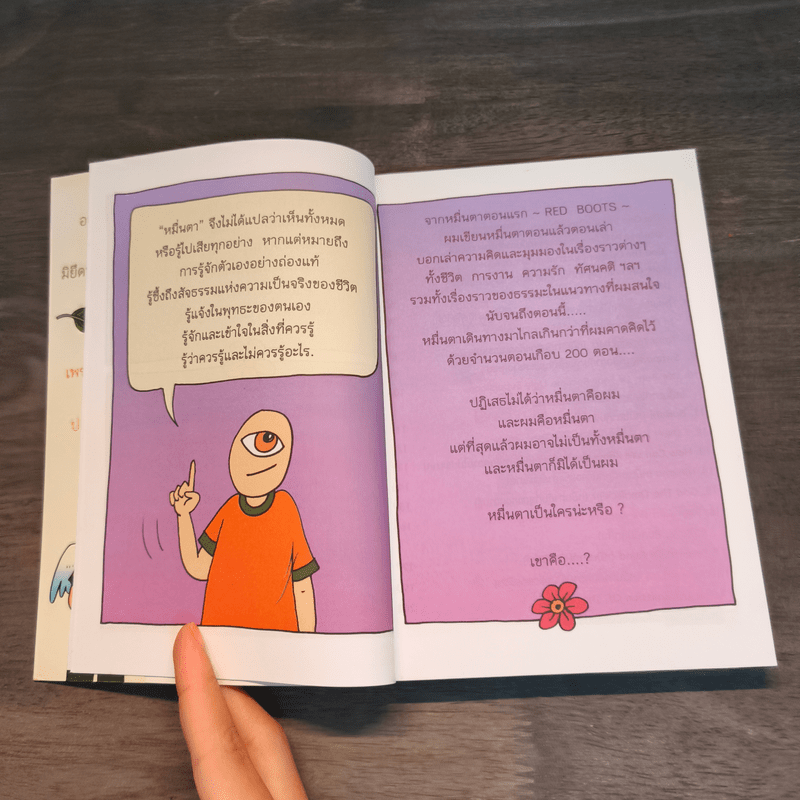 อ
มิยึด
เพร
ป
"หมื่นตา" จึงไม่ได้แปลว่าเห็นทั้งหมด
หรือรู้ไปเสียทุกอย่าง หากแต่หมายถึง
การรู้จักตัวเองอย่างถ่องแท้
รู้ซึ้งถึงสัจธรรมแห่งความเป็นจริงของชีวิต
รู้แจ้งในพุทธะของตนเอง
รู้จักและเข้าใจในสิ่งที่ควรรู้
รู้ว่าควรรู้และไม่ควรรู้อะไร.
จากหมื่นตาตอนแรก ~ RED BOOTS ~
ผมเขียนหมื่นตาตอนแล้วตอนเล่า
บอกเล่าความคิดและมุมมองในเรื่องราวต่างๆ
ทั้งชีวิต การงาน ความรัก ทัศนคติ ฯลฯ
รวมทั้งเรื่องราวของธรรมะในแนวทางที่ผมสนใจ
นับจนถึงตอนนี้.....
หมื่นตาเดินทางมาไกลเกินกว่าที่ผมคาดคิดไว้
ด้วยจำนวนตอนเกือบ 200 ตอน....
ปฏิเสธไม่ได้ว่าหมื่นตาคือผม
และผมคือหมื่นตา
แต่ที่สุดแล้วผมอาจไม่เป็นทั้งหมื่นตา
และหมื่นตาก็มิได้เป็นผม
หมื่นตาเป็นใครน่ะหรือ ?
เขาคือ....?